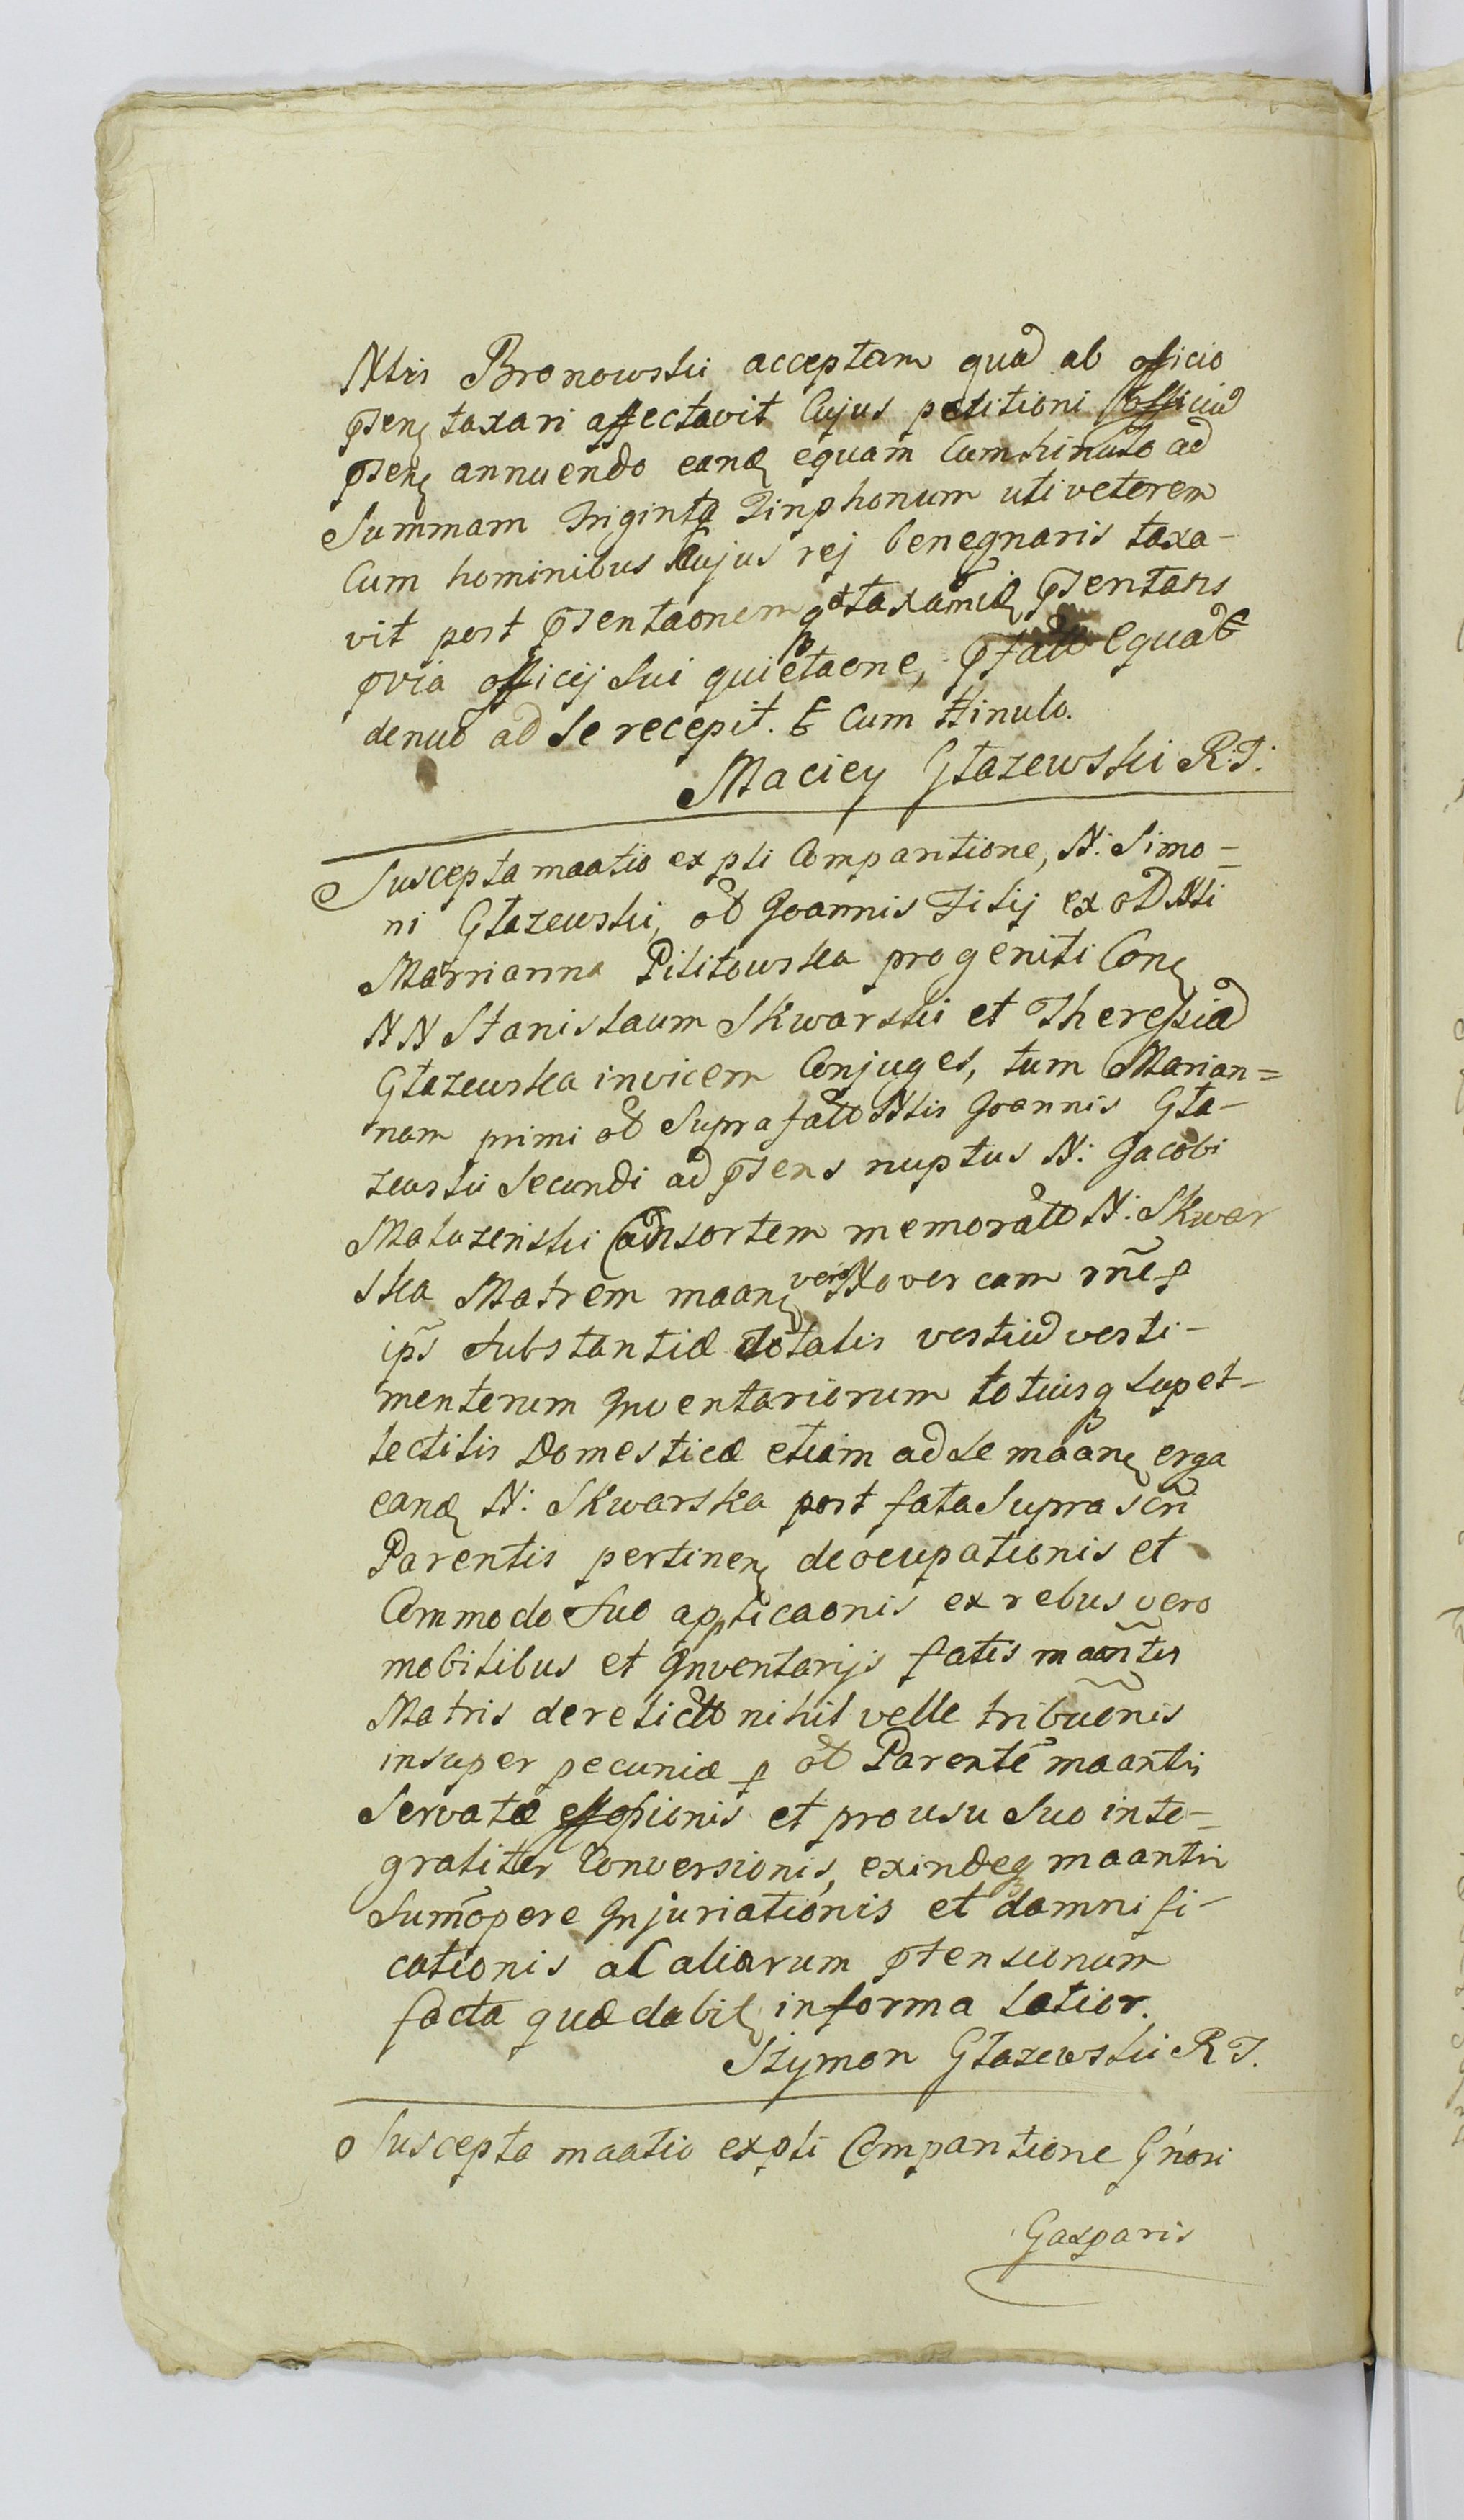 Nlis Bronowski acceptam quā ab officio
pſen taxari affectavit Cujus petitioni Officiū
pſen annuendo eand equam Cum hinulo ad
Summam Triginta Tinphonum uti veterem
Cum hominibus hujus rej benegnaris taxa-
vit post pſentaonem pſentans
pvia officij sui quietaone, pfatā Equā
denuo ad se recepit. Et Cum Hinulo.
Maciey Głazewski R: T:
Suscepta maatio ex psli Comparitione, N: Simo=
ni Głazewski, ol Joannis Filij ex ol Nli
Marrianna Pilitowska progeniti Con
NN Stanislaum Skwarski et Theressiā
Głazewska invicem Conjuges, tum Marian=
nam primi ol Suprafati Nlis Joannis Gła-
zewski Secundi ad pſens nuptus N: Jacobi
Maluzenski Consortem memorati N: Skwar
ska Matrem maan vero Novercam rne p
ips Substantiæ dotalis vestiū vesti-
mentorum Inventariorum totiusq supel-
lectilis Domesticæ etiam ad se maan erga
eand N: Skwarska post fata Supra scri
Parentis pertinen deocupationis et
Commodo Suo applicaonis ex rebus vero
mobilibus et Inventarijs fatis maantis
Matris derelictis nihil velle tribuonis
insuper pecuniæ p ol Parente maantis
Servatæ effossionis et pro usu Suo inte-
graliter Conversionis, exindeq maantis
Sumopere Injuriationis et damnifi-
cationis al aliarum ptensionum
facta quæ dabit in forma latior.
Szymon Głazewski R T.
o Suscepta maatio ex psli Comparitione Gnosi
Gasparis